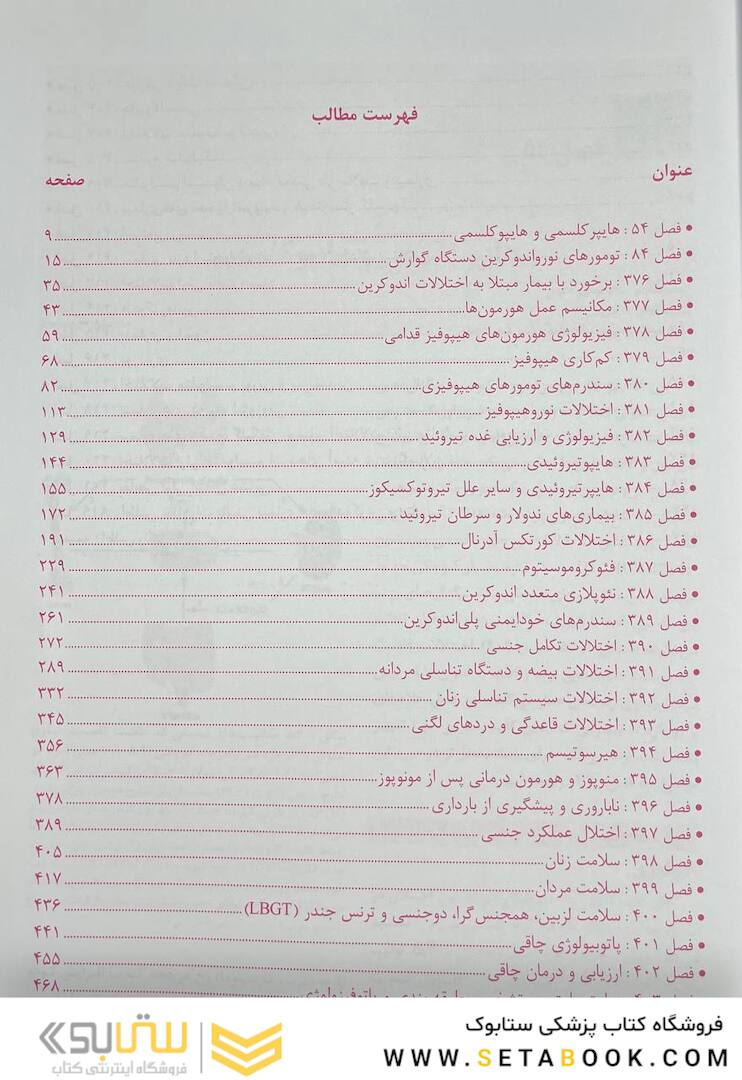 فهرست مطالب
عنوان صفحه
• فصل ۵۴ : هایپرکلسمی و هایپوکلسمی ۹
• فصل ۸۴ : تومورهای نورواندوکرین دستگاه گوارش ۱۵
• فصل ۳۷۶ : برخورد با بیمار مبتلا به اختلالات اندوکرین ۳۵
• فصل ۳۷۷ : مکانیسم عمل هورمون‌ها ۴۳
• فصل ۳۷۸ : فیزیولوژی هورمون‌های هیپوفیز قدامی ۵۹
• فصل ۳۷۹ : کم‌کاری هیپوفیز ۶۸
• فصل ۳۸۰ : سندرم‌های تومورهای هیپوفیزی ۸۲
• فصل ۳۸۱ : اختلالات نوروهیپوفیز ۱۱۳
• فصل ۳۸۲ : فیزیولوژی و ارزیابی غده تیروئید ۱۲۹
• فصل ۳۸۳ : هایپوتیروئیدی ۱۴۴
• فصل ۳۸۴ : هایپرتیروئیدی و سایر علل تیروتوکسیکوز ۱۵۵
• فصل ۳۸۵ : بیماری‌های ندولار و سرطان تیروئید ۱۷۲
• فصل ۳۸۶ : اختلالات کورتکس آدرنال ۱۹۱
• فصل ۳۸۷ : فئوکروموسیتوم ۲۲۹
• فصل ۳۸۸ : نئوپلازی متعدد اندوکرین ۲۴۱
• فصل ۳۸۹ : سندرم‌های خودایمنی پلی‌اندوکرین ۲۶۱
• فصل ۳۹۰ : اختلالات تکامل جنسی ۲۷۲
• فصل ۳۹۱ : اختلالات بیضه و دستگاه تناسلی مردانه ۲۸۹
• فصل ۳۹۲ : اختلالات سیستم تناسلی زنان ۳۳۲
• فصل ۳۹۳ : اختلالات قاعدگی و دردهای لگنی ۳۴۵
• فصل ۳۹۴ : هیرسوتیسم ۳۵۶
• فصل ۳۹۵ : منوپوز و هورمون درمانی پس از مونوپوز ۳۶۳
• فصل ۳۹۶ : ناباروری و پیشگیری از بارداری ۳۷۸
• فصل ۳۹۷ : اختلال عملکرد جنسی ۳۸۹
• فصل ۳۹۸ : سلامت زنان ۴۰۵
• فصل ۳۹۹ : سلامت مردان ۴۱۷
• فصل ۴۰۰ : سلامت لزبین، همجنس‌گرا، دوجنسی و ترنس جندر (LBGT) ۴۳۶
• فصل ۴۰۱ : پاتوبیولوژی چاقی ۴۴۱
• فصل ۴۰۲ : ارزیابی و درمان چاقی ۴۵۵
۴۶۸
فروشگاه کتاب پزشکی ستابوک
WWW.SETABOOK.COM
ستابوک
فروشگاه اینترنتی کتاب